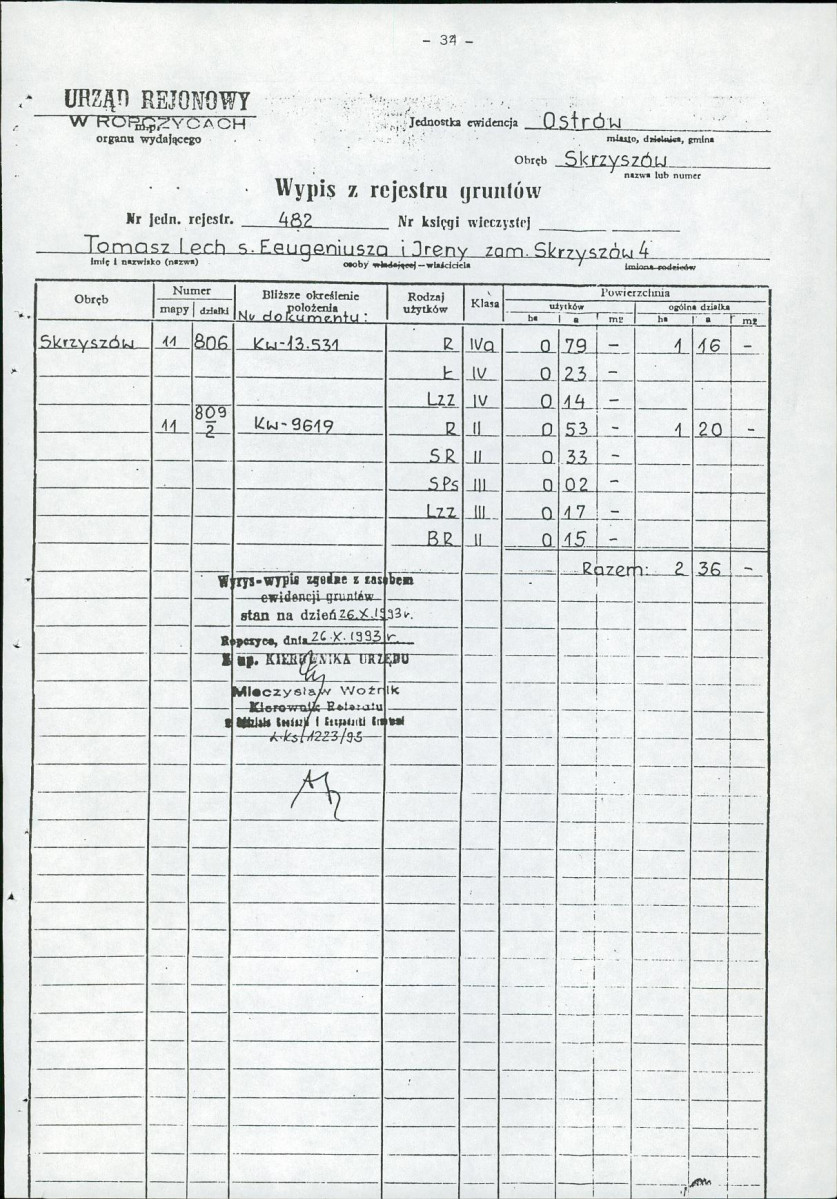 - 34 -
URZĄD REJONOWY
W ROPCZYCACH
organu wydającego
Jednostka ewidencja Ostrów
miasto, dzielnica, gmina
Obręb Skrzyszów
nazwa lub numer
Wypis z rejestru gruntów
Nr jedn. rejestr. 482 Nr księgi wieczystej
Tomasz Lech s. Eeugeniusza i Ireny zam. Skrzyszów 4
imię i nazwisko (nazwa) osoby władającej - właściciela imiona rodziców
Obręb Numer Bliższe określenie położenia Rodzaj użytków Klasa Powierzchnia
mapy działki Nr dokumentu: użytków ogólna działka
ha a m² ha a m²
Skrzyszów 11 806 Kw-13.531 R IVa 0 79 - 1 16 -
Ł IV 0 23 -
Lzz IV 0 14 -
11 809/2 Kw-9619 R II 0 53 - 1 20 -
SR II 0 33 -
SPs III 0 02 -
Lzz III 0 17 -
BR II 0 15 -
Razem: 2 36 -
Wyrys-wypis zgodne z zasobem
ewidencji gruntów
stan na dzień 26.X.1993r.
Ropczyce, dnia 26.X.1993r.
Z up. KIEROWNIKA URZĘDU
Mieczysław Woźnik
Kierownik Referatu
w Oddziale Geodezji i Gospodarki Gruntami
1223/93